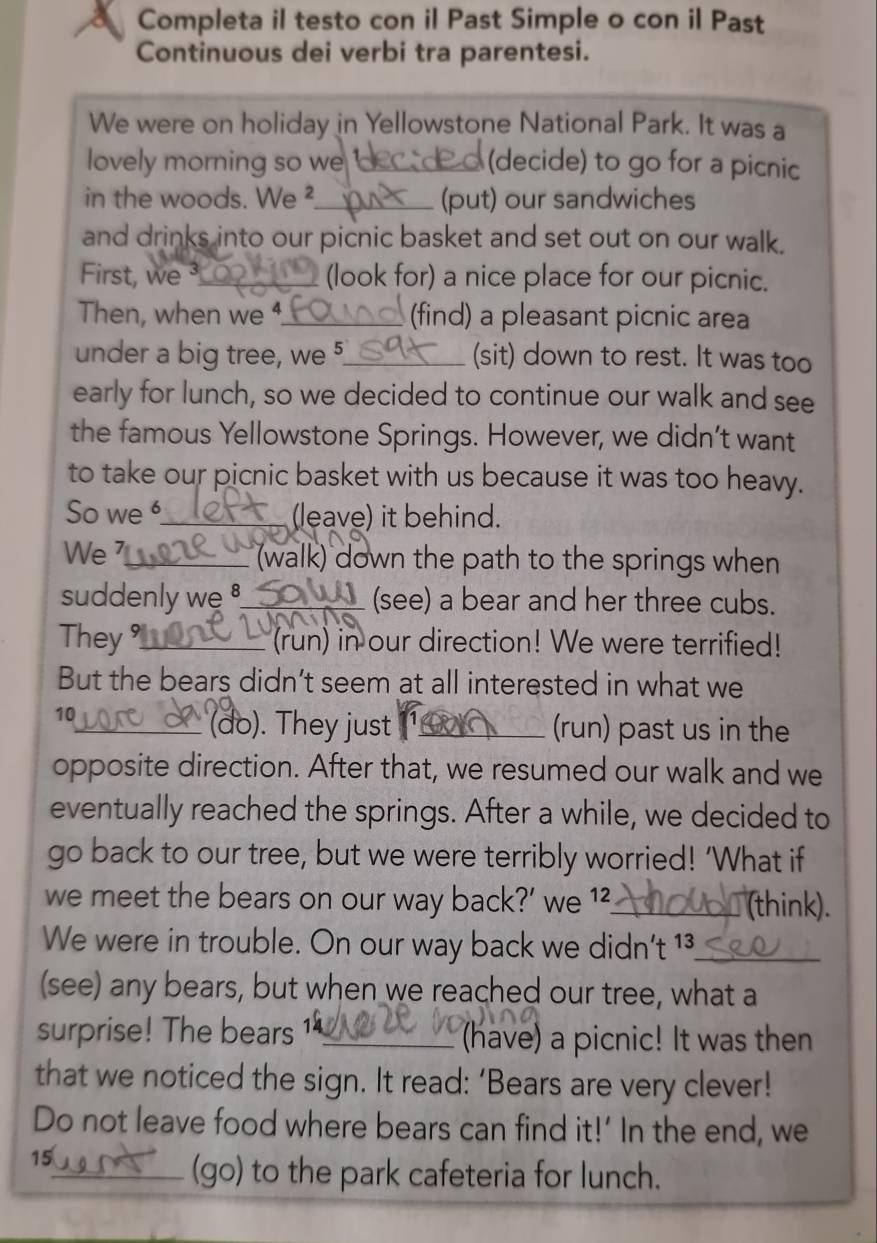 Completa il testo con il Past Simple o con il Past
Continuous dei verbi tra parentesi.
We were on holiday in Yellowstone National Park. It was a
lovely morning so we ¹ decided (decide) to go for a picnic
in the woods. We ² put (put) our sandwiches
and drinks into our picnic basket and set out on our walk.
First, we ³ were looking for (look for) a nice place for our picnic.
Then, when we ⁴ found (find) a pleasant picnic area
under a big tree, we ⁵ sat (sit) down to rest. It was too
early for lunch, so we decided to continue our walk and see
the famous Yellowstone Springs. However, we didn't want
to take our picnic basket with us because it was too heavy.
So we ⁶ left (leave) it behind.
We ⁷ were (walk) down the path to the springs when
suddenly we ⁸ saw (see) a bear and her three cubs.
They ⁹ (run) in our direction! We were terrified!
But the bears didn't seem at all interested in what we
¹⁰ were doing (do). They just ¹¹ (run) past us in the
opposite direction. After that, we resumed our walk and we
eventually reached the springs. After a while, we decided to
go back to our tree, but we were terribly worried! 'What if
we meet the bears on our way back?' we ¹² (think).
We were in trouble. On our way back we didn't ¹³ see
(see) any bears, but when we reached our tree, what a
surprise! The bears ¹⁴ (have) a picnic! It was then
that we noticed the sign. It read: 'Bears are very clever!
Do not leave food where bears can find it!' In the end, we
¹⁵ went (go) to the park cafeteria for lunch.